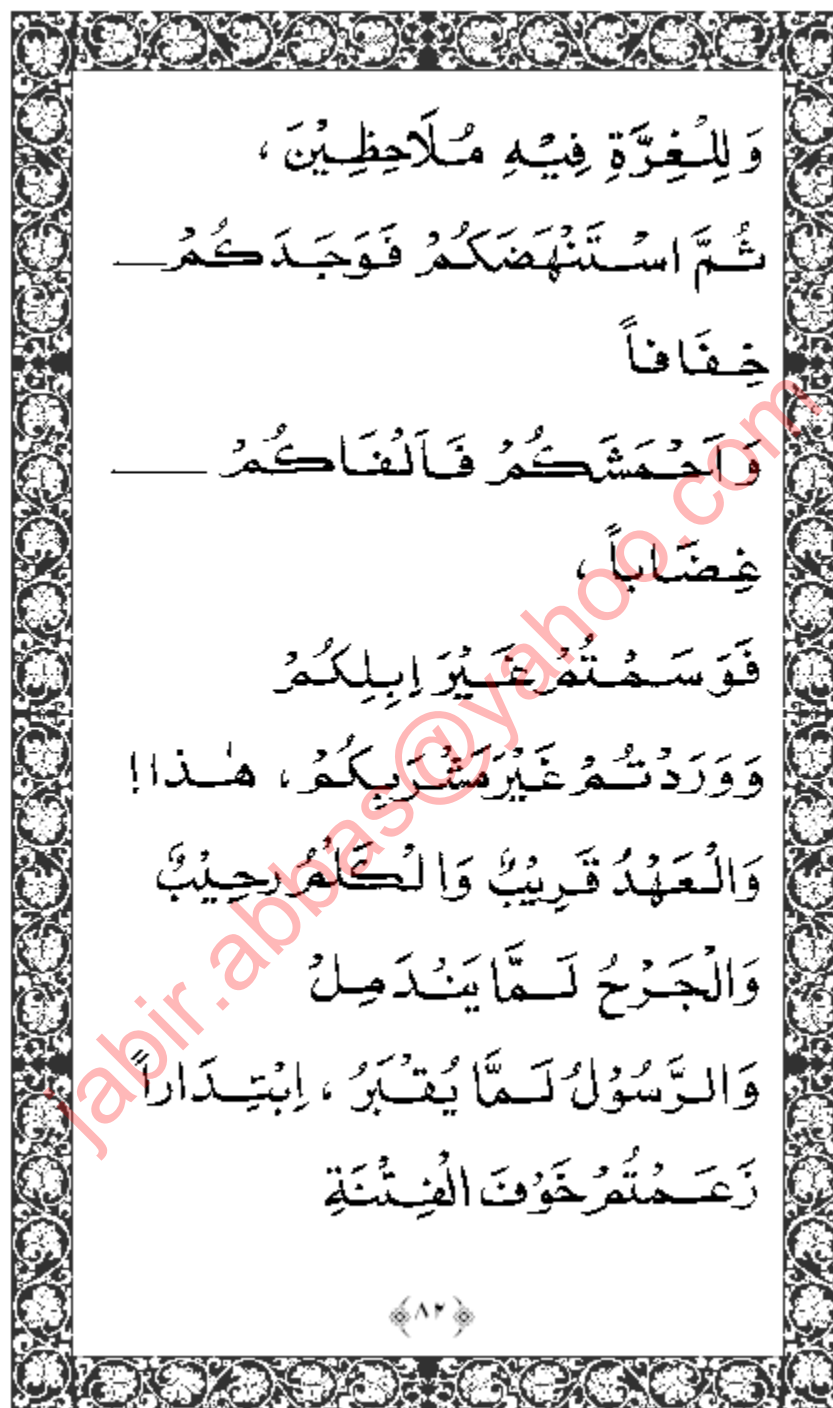 وَ لِلْغِرَّةِ فِيْهِ مُلَاحِظِيْنَ ،
ثُمَّ اسْتَنْهَضَكُمْ فَوَجَدَكُمْ
خِفَافاً
وَ اَحْمَشَكُمْ فَاَلْفَاكُمْ
غِضَاباً ،
فَوَسَمْتُمْ غَيْرَ اِبِلِكُمْ
وَوَرَدْتُمْ غَيْرَ مَشْرَبِكُمْ ، هٰذا!
وَالْعَهْدُ قَرِيْبٌ وَالْكَلْمُ رحِيْبٌ
وَالْجَرْحُ لَمَّا يَنْدَمِلْ
وَالرَّسُوْلُ لَمَّا يُقْبَرُ ، اِبْتِدَاراً
زَعَمْتُمْ خَوْفَ الْفِتْنَةِ
﴿۸۲﴾
jabir.abbas@yahoo.com